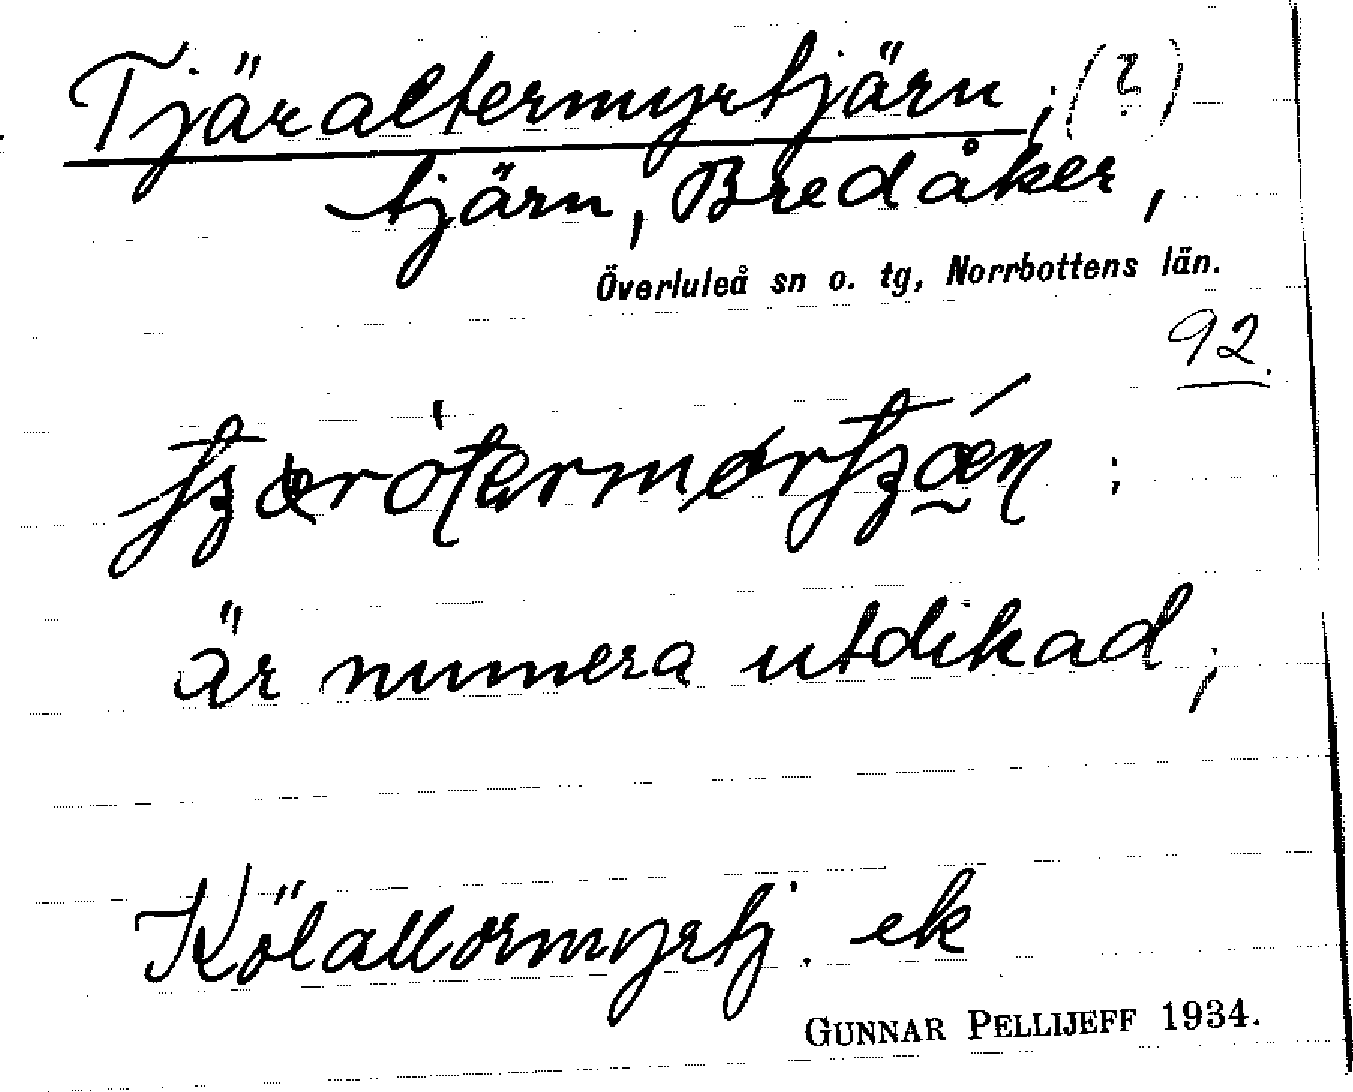 Tjäraltermyrtjärn; (?)
tjärn, Bredåker,
Överluleå sn o. tg, Norrbottens län.
92.
är numera utdikad;
Kölallörmyrtj. ek
GUNNAR PELLIJEFF 1934.